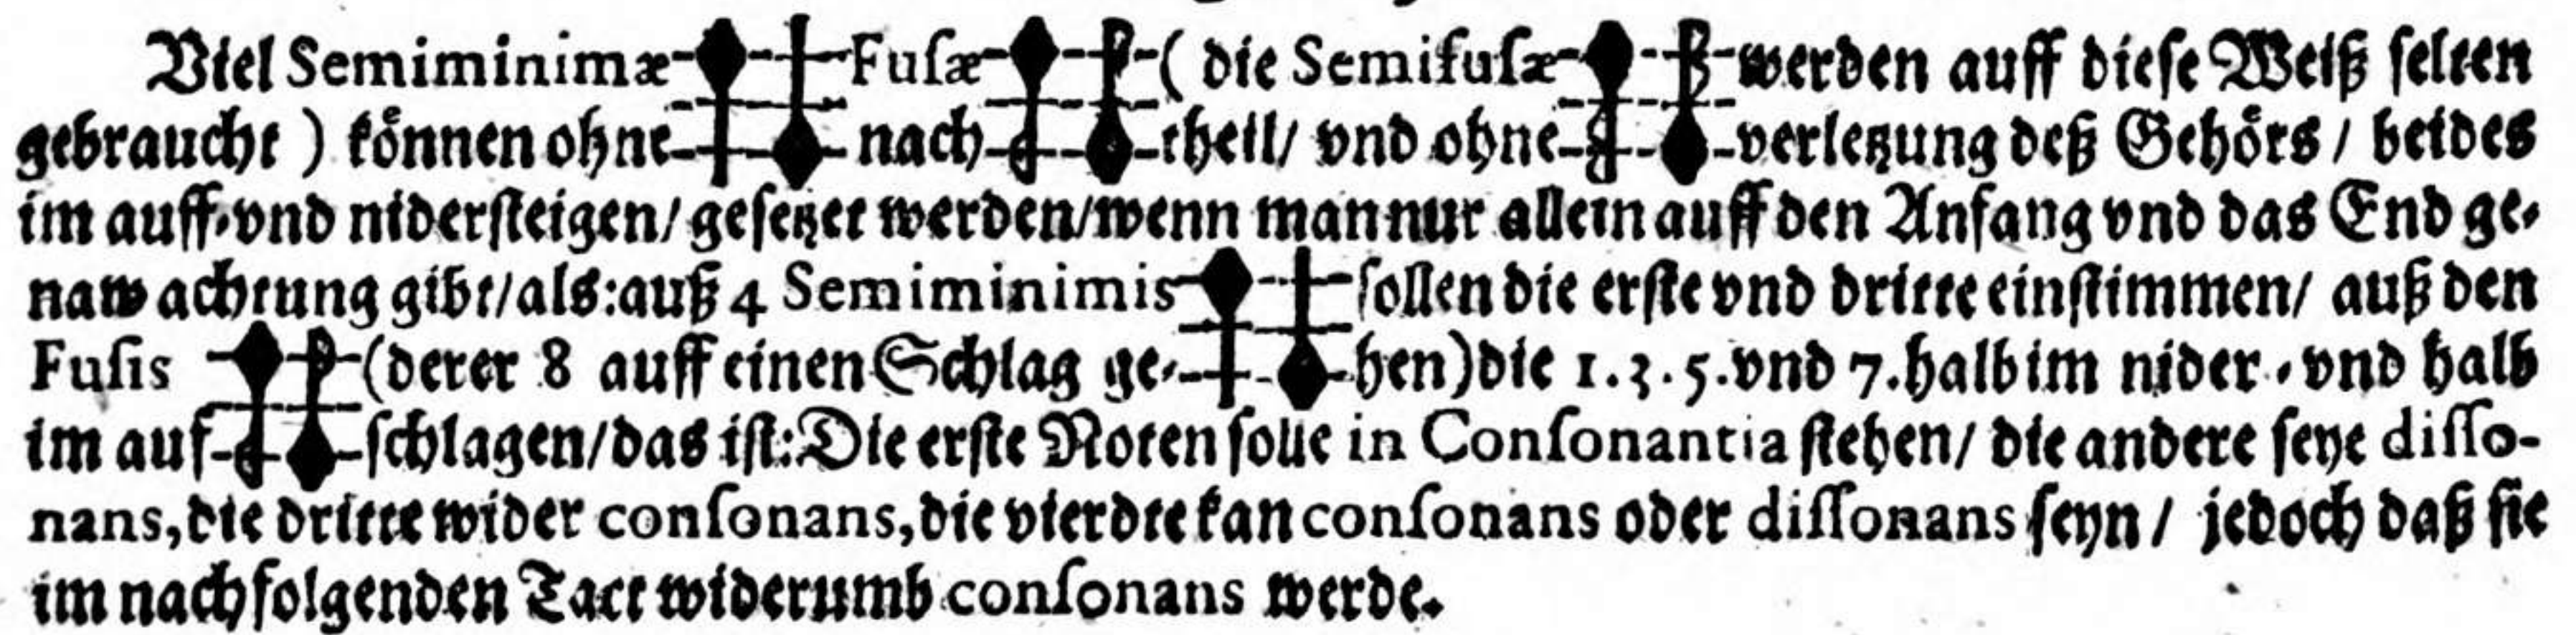 Viel Semiminimæ Fuſæ ( die Semifuſæ werden auff dieſe Weiß ſelten
gebraucht ) können ohne nachtheil/ vnd ohne verletzung deß Gehörs / beides
im auff-vnd niderſteigen/ geſetzet werden/wenn man nur allein auff den Anfang vnd das End ge-
naw achtung gibt/als:auß 4 Semiminimis ſollen die erſte vnd dritte einſtimmen/ auß den
Fuſis (derer 8 auff einen Schlag ge-hen)die 1.3.5.vnd 7.halb im nider-vnd halb
im aufſchlagen/das iſt:Die erſte Noten ſolle in Conſonantia ſtehen/ die andere ſeye diſſo-
nans,die dritte wider conſonans,die vierdte kan conſonans oder diſſonans ſeyn / jedoch daß ſie
im nachfolgenden Tact widerumb conſonans werde.